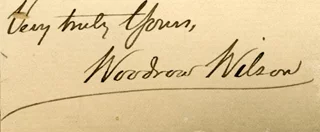 Very truly Yours,
Woodrow Wilson